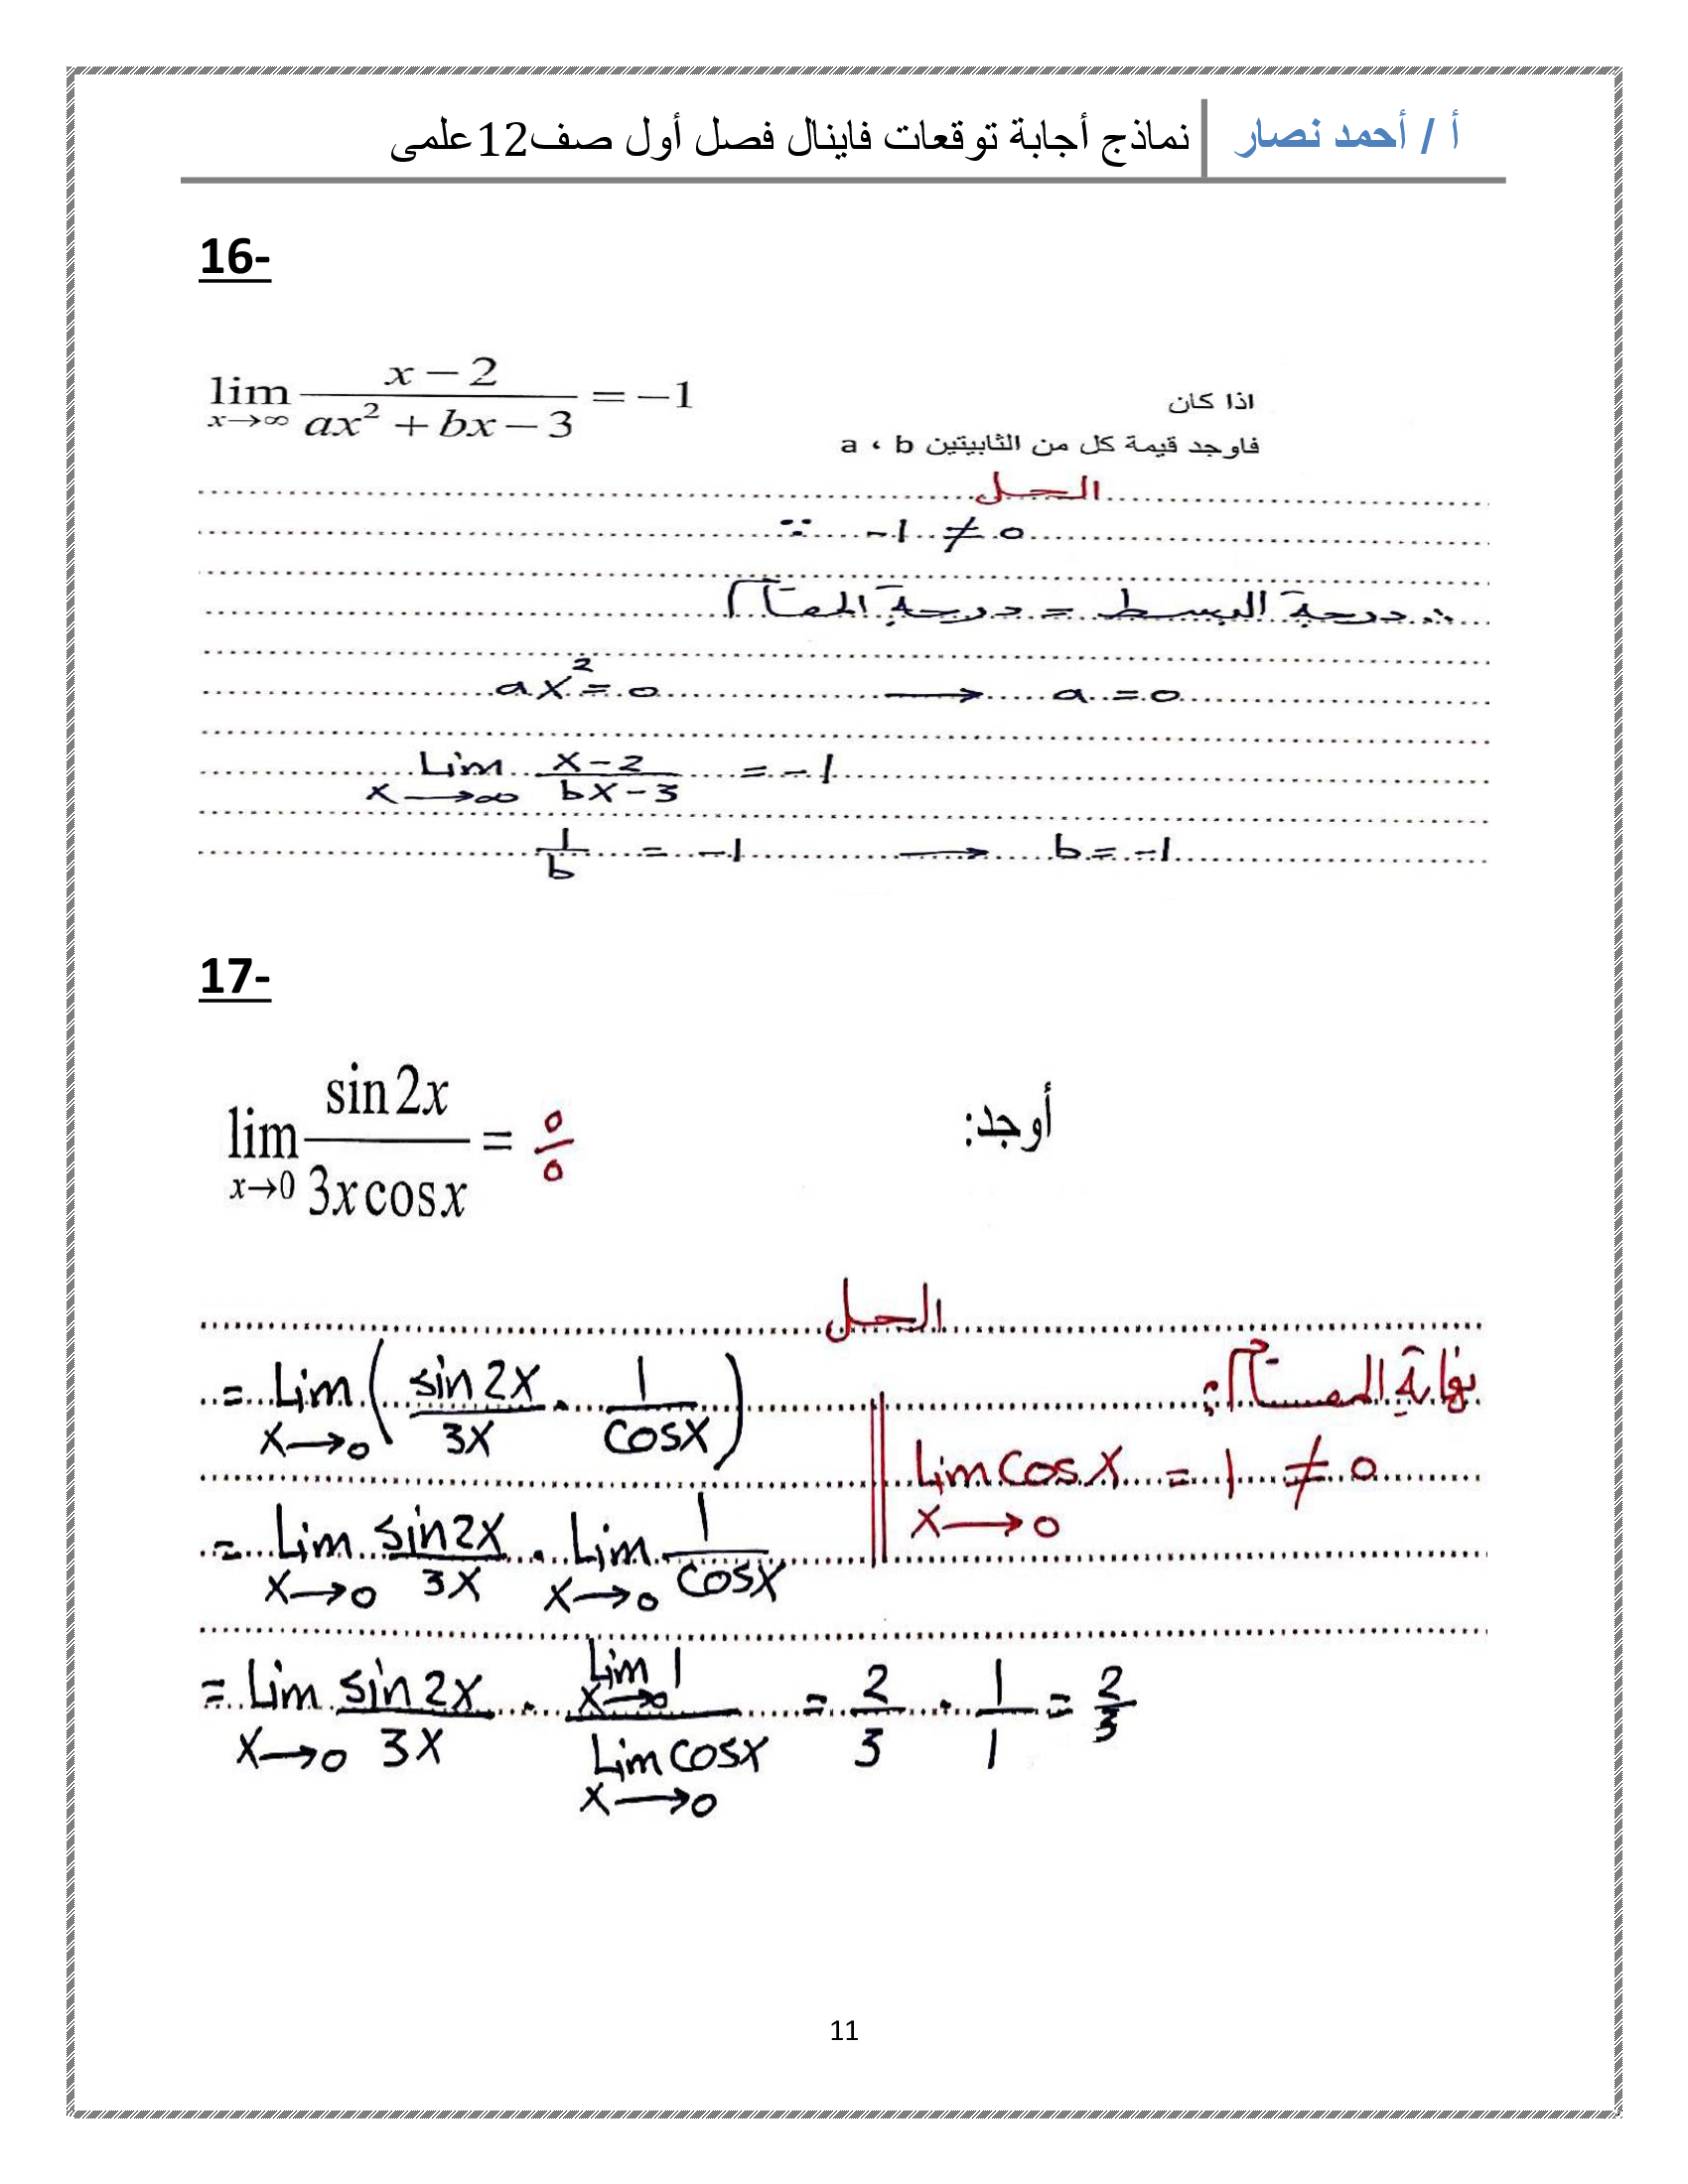 أ / أحمد نصار | نماذج أجابة توقعات فاينال فصل أول صف12علمى
16-
اذا كان lim x→∞ (x − 2)/(ax² + bx − 3) = −1
فاوجد قيمة كل من الثابيتين a ، b
الحل
∵ −1 ≠ 0
∴ درجة البسط = درجة المقام
ax² = 0 ⟶ a = 0
Lim x⟶∞ (x−2)/(bx−3) = −1
1/b = −1 ⟶ b = −1
17-
أوجد: lim x→0 sin2x/(3x cosx) = 0/0
الحل
نهاية المقام:
= Lim x→0 (sin2x/3x · 1/cosx)
Lim x→0 cosx = 1 ≠ 0
= Lim x→0 sin2x/3x · Lim x→0 1/cosx
= Lim x→0 sin2x/3x · (Lim x→0 1)/(Lim x→0 cosx) = 2/3 · 1/1 = 2/3
11